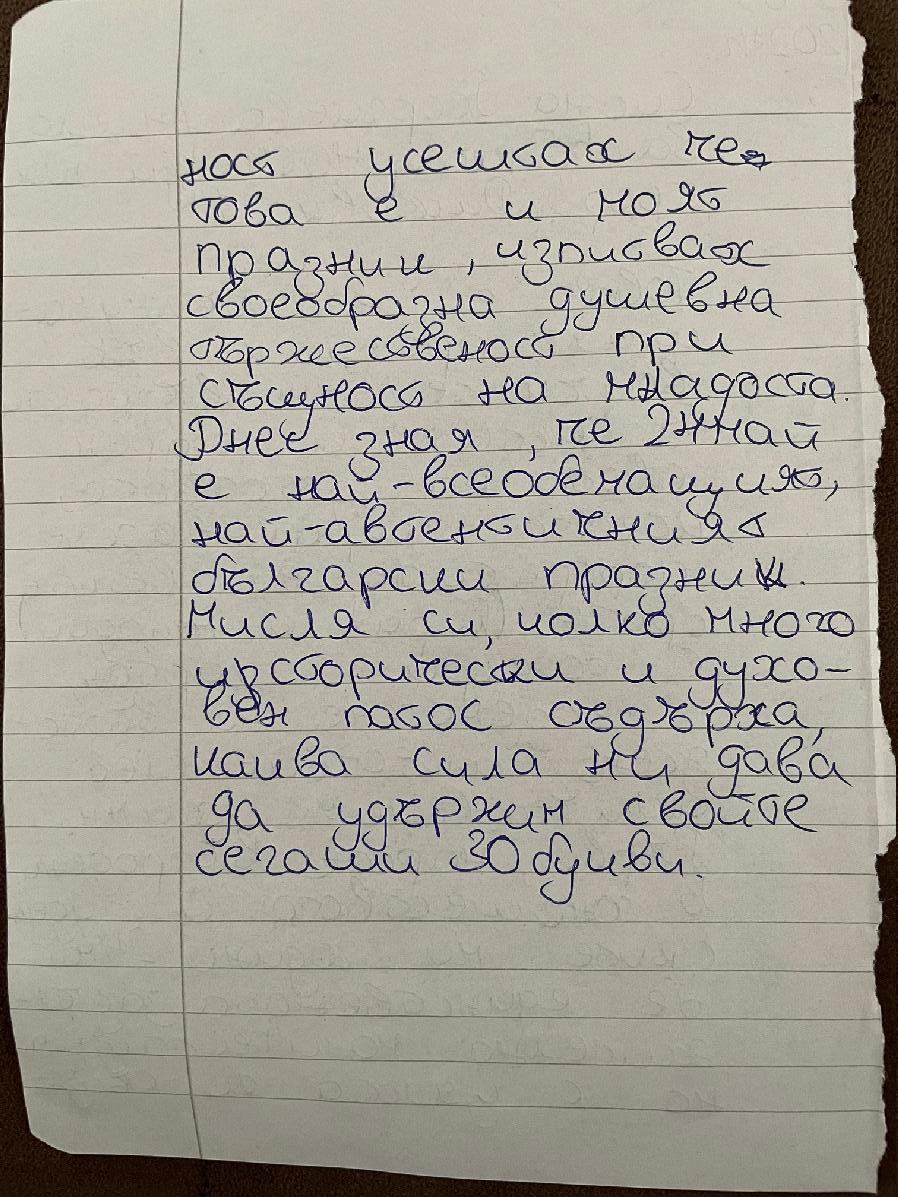 ност усештах че
това е и моят
празник, изписвах
своеобразна душевна
тържественост при
същност на младостта.
Днес зная, че 24 май
е най-всеобемащият,
най-автентичният
български празник.
Мисля си, колко много
исторически и духо-
вен патос съдържа,
каква сила ни дава
да удържим своите
сегашни 30 букви.